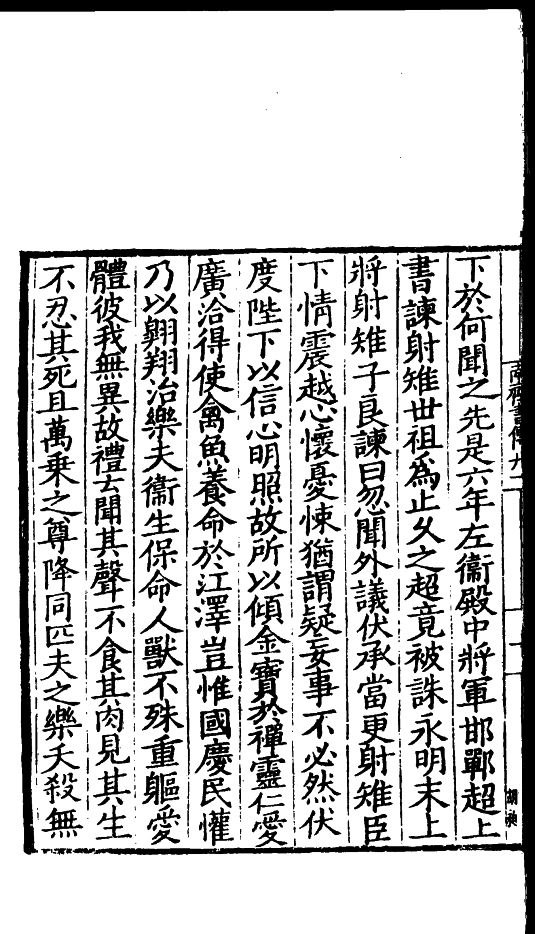 下於何聞之先是六年左衞殿中將軍邯鄲超上
書諫射雉世祖爲止乆之超竟被誅永明末上
將射雉子良諫曰忽聞外議伏承當更射雉臣
下情震越心懷憂悚猶謂疑妄事不必然伏
度陛下以信心明照故所以傾金寶於禪靈仁愛
廣洽得使禽魚養命於江澤豈惟國慶民懽
乃以翺翔治樂夫衞生保命人獸不殊重軀愛
體彼我無異故禮云聞其聲不食其肉見其生
不忍其死且萬乗之尊降同匹夫之樂夭殺無